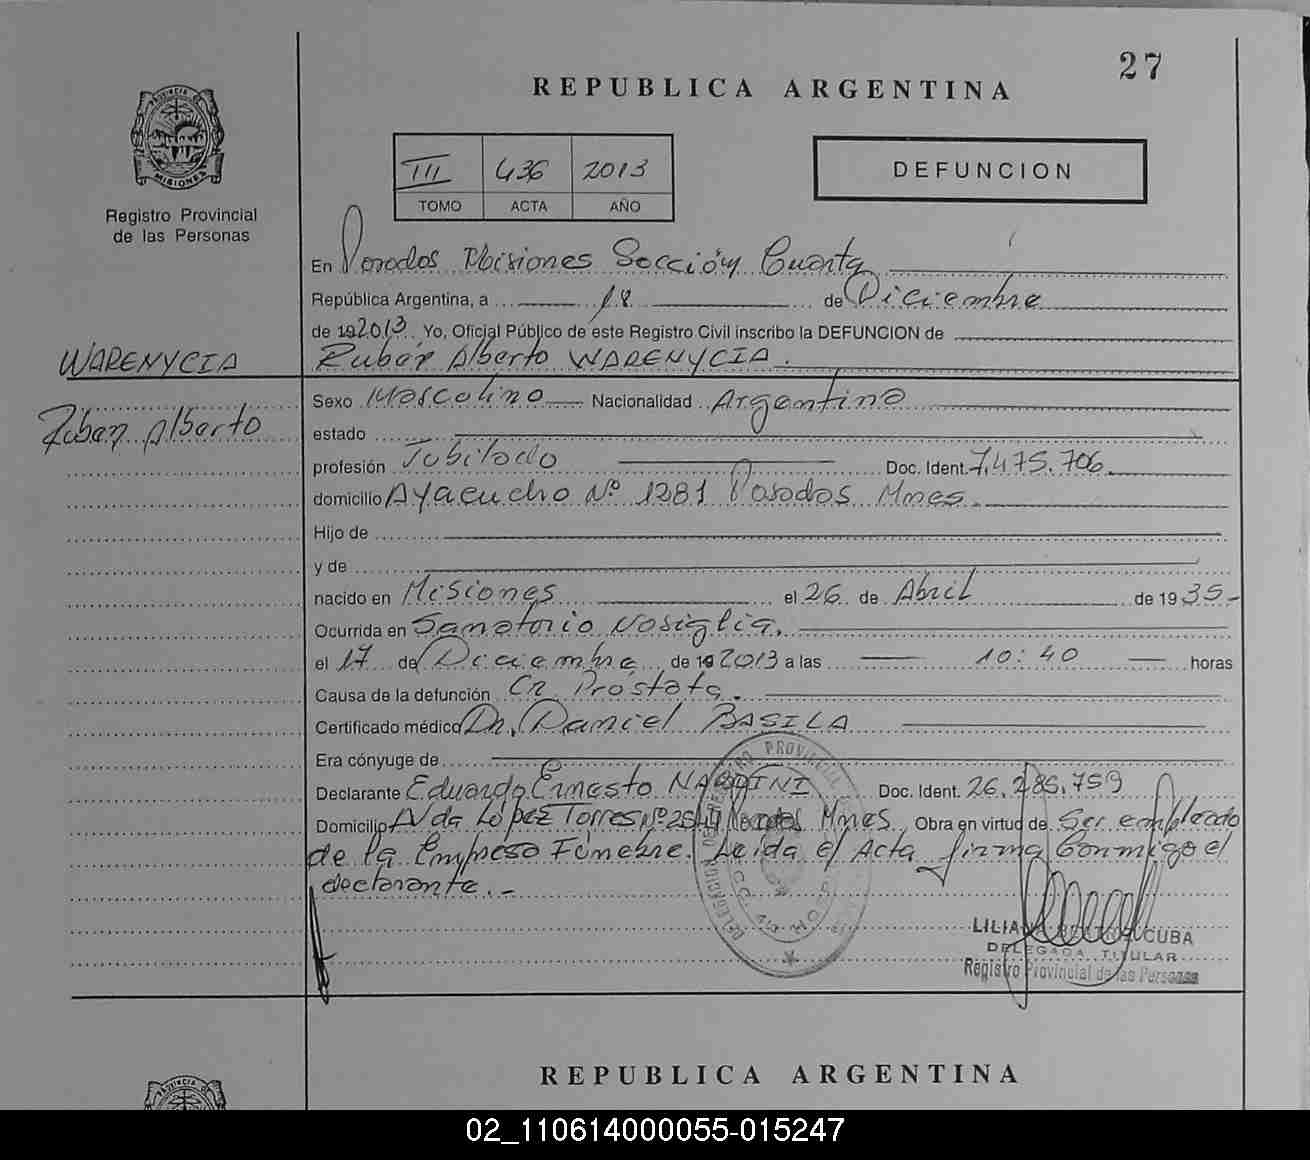 27
REPUBLICA ARGENTINA
PROVINCIA DE
MISIONES
Registro Provincial
de las Personas
III 436 2013
TOMO ACTA AÑO
DEFUNCION
En Posadas Misiones Sección Cuarta
República Argentina, a 18 de Diciembre
de 192013 Yo, Oficial Público de este Registro Civil inscribo la DEFUNCION de
WARENYCIA
Rubén Alberto WARENYCIA.
Rubén Alberto
Sexo Masculino Nacionalidad Argentina
estado
profesión Jubilado Doc. Ident. 7.475.706
domicilio Ayacucho Nº 1281 Posadas Mnes.
Hijo de
y de
nacido en Misiones el 26 de Abril de 1935-
Ocurrida en Sanatorio Nosiglia.
el 17 de Diciembre de 192013 a las 10:40 horas
Causa de la defunción Ca Próstata.
Certificado médico Dr. Daniel BASILA
Era cónyuge de
Declarante Eduardo Ernesto Doc. Ident. 26.285.759
Domicilio Avda López Torres Nº Posadas Mnes Obra en virtud de Ser empleado
de la Empresa Fúnebre. Leida el Acta firma Conmigo el
declarante.-
LILIANA BEATRIZ CUBA
DELEGADA TITULAR
Registro Provincial de las Personas
REPUBLICA ARGENTINA
PROVINCIA DE
02_110614000055-015247